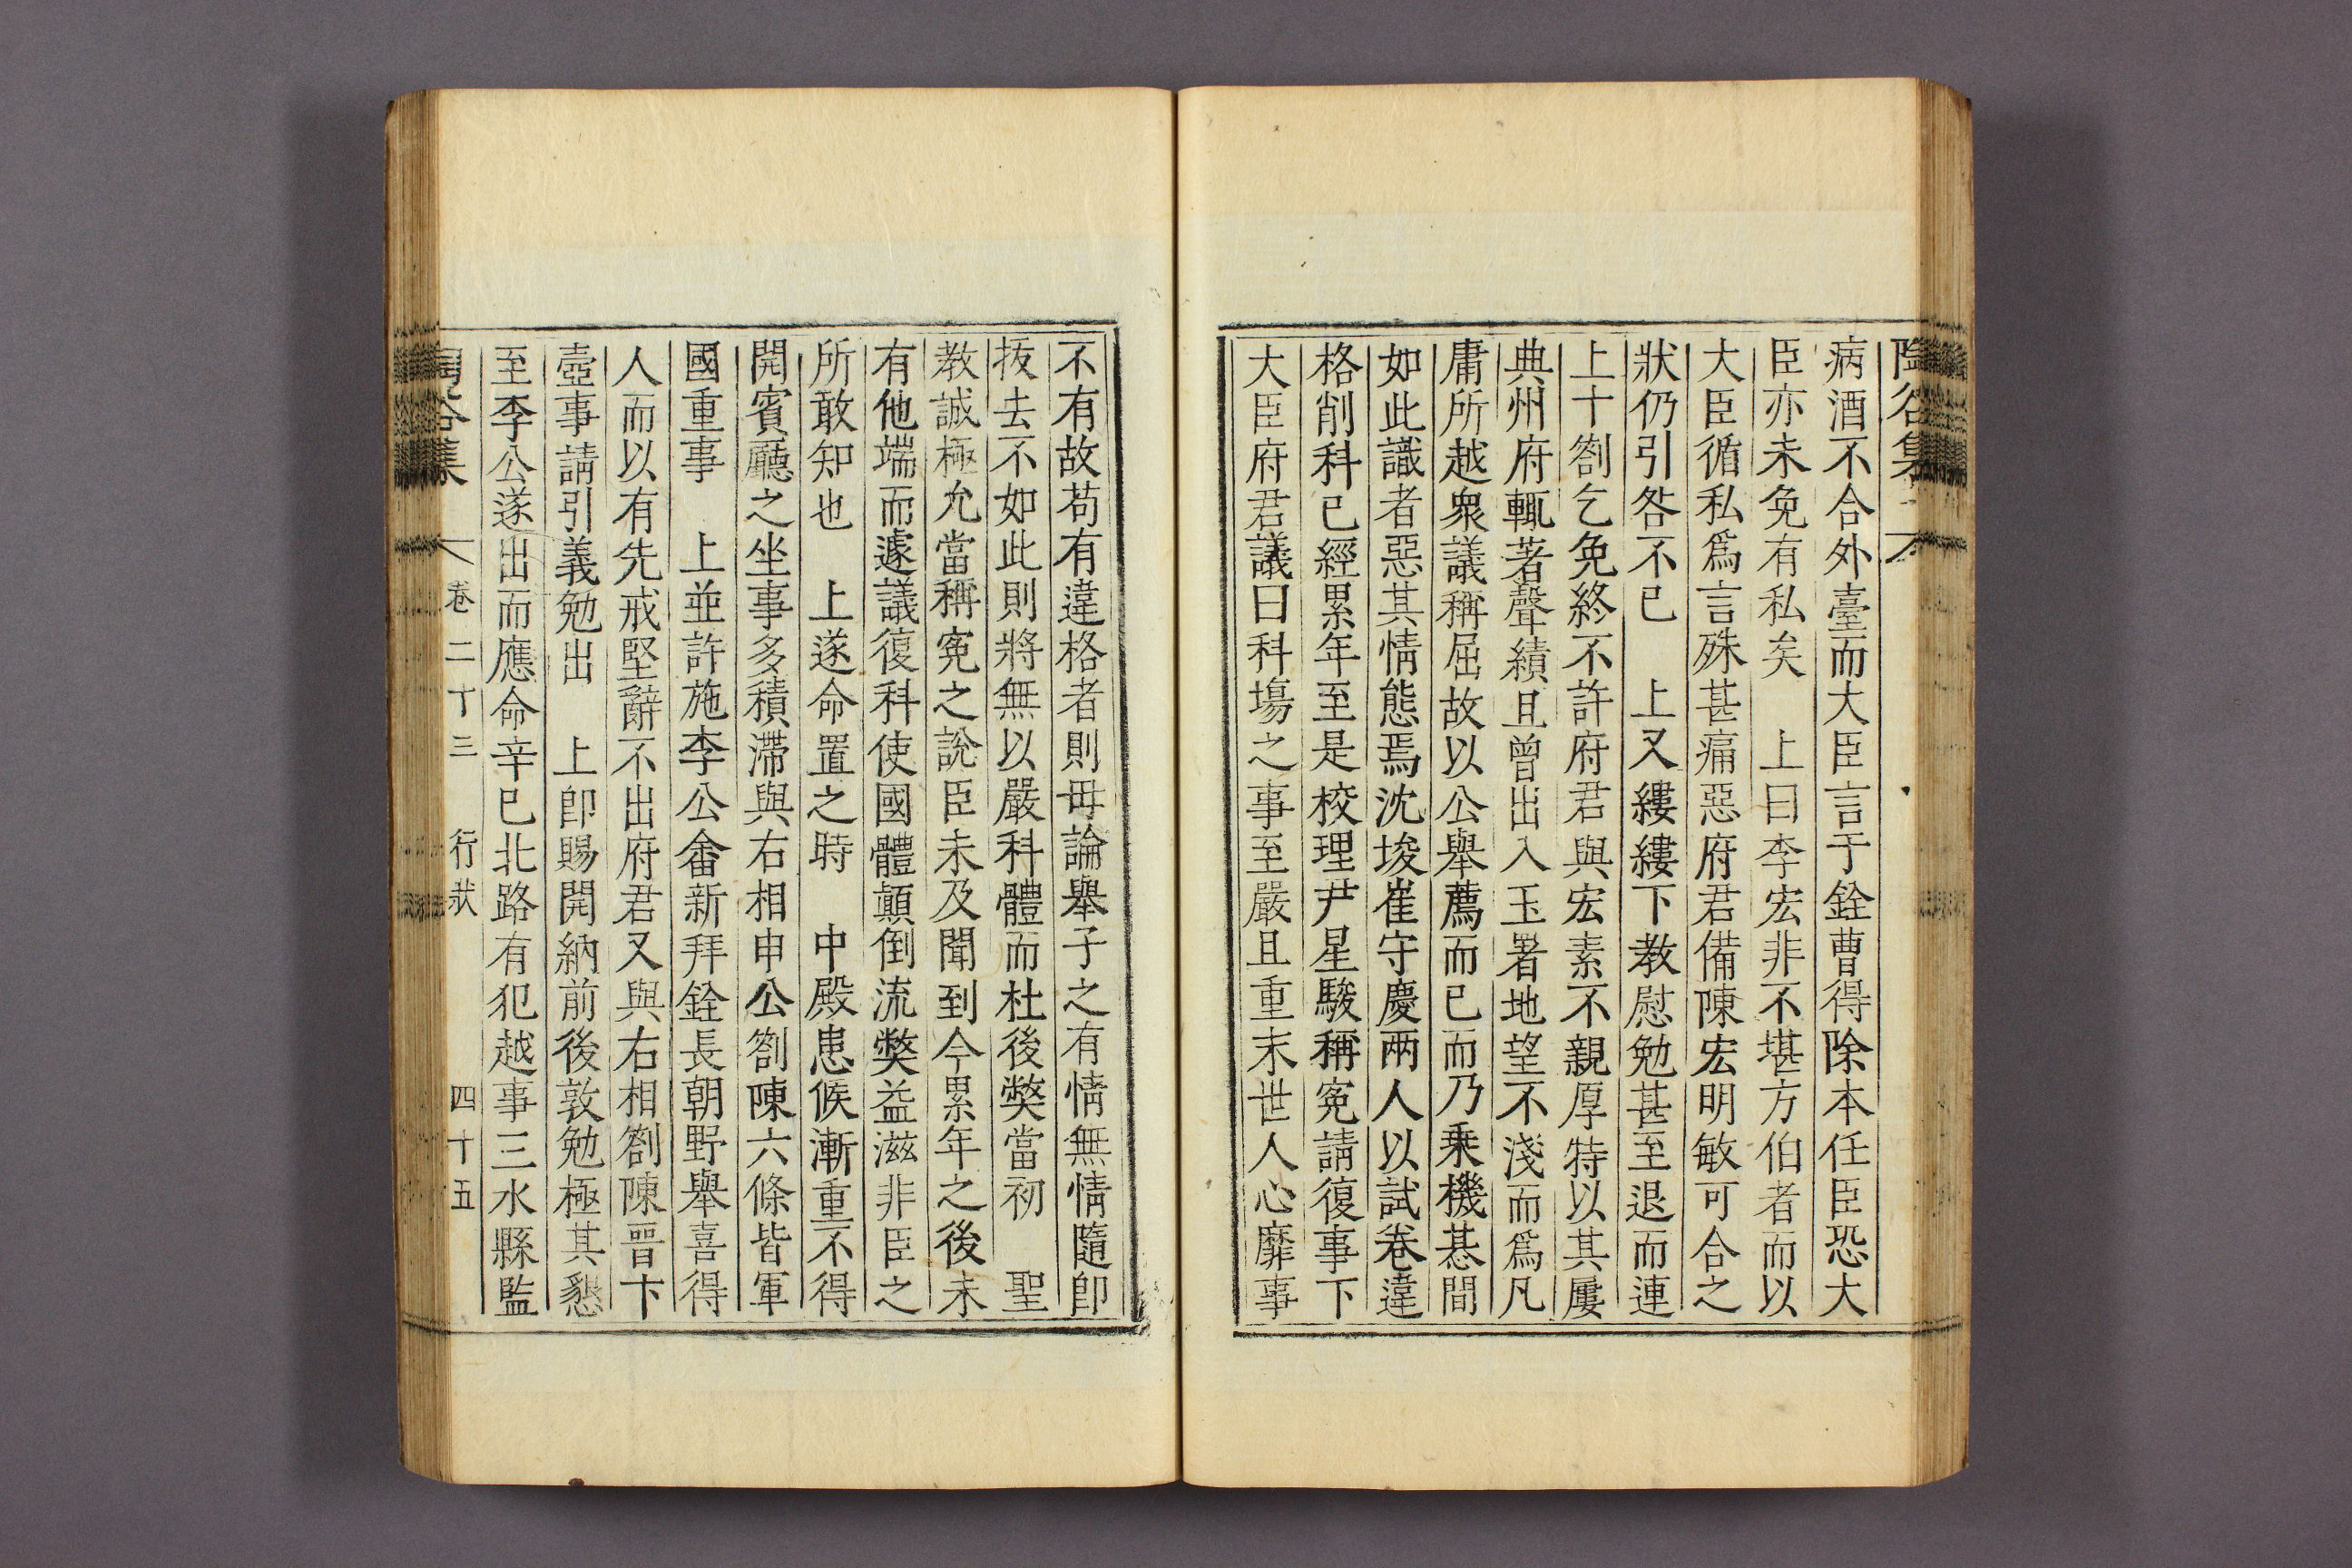 陶谷集
病酒不合外臺而大臣言于銓曹得除本任臣恐大
臣亦未免有私矣　上曰李宏非不堪方伯者而以
大臣循私爲言殊甚痛惡府君備陳宏明敏可合之
狀仍引咎不已　上又縷縷下敎慰勉甚至退而連
上十劄乞免終不許府君與宏素不親厚特以其屢
典州府輒著聲績且曾出入玉署地望不淺而爲凡
庸所越衆議稱屈故以公擧薦而已而乃乗機惎間
如此識者惡其情態焉沈埈崔守慶兩人以試卷違
格削科已經累年至是校理尹星駿稱寃請復事下
大臣府君議曰科塲之事至嚴且重末世人心靡事
不有故苟有違格者則毋論擧子之有情無情隨卽
拔去不如此則將無以嚴科體而杜後獘當初　聖
敎誠極允當稱寃之說臣未及聞到今累年之後未
有他端而遽議復科使國體顚倒流獘益滋非臣之
所敢知也　上遂命置之時　中殿患候漸重不得
開賓廳之坐事多積滯與右相申公劄陳六條皆軍
國重事　上並許施李公畬新拜銓長朝野擧喜得
人而以有先戒堅辭不出府君又與右相劄陳晋卞
壺事請引義勉出　上卽賜開納前後敦勉極其懇
至李公遂出而應命辛巳北路有犯越事三水縣監
陶谷集　卷二十三　行狀　四十五